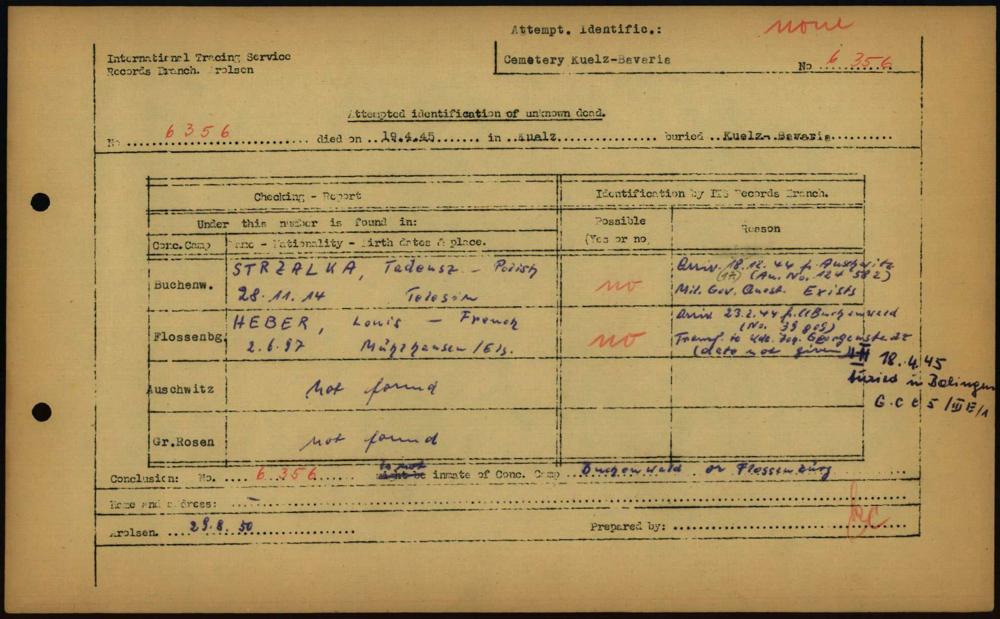 Attempt. Identific.: none
International Tracing Service
Records Branch. Arolsen
Cemetery Kuelz-Bavaria
No 6 356
Attempted identification of unknown dead.
No 6356 died on 19.4.45 in Kualz. buried Kuelz-Bavaria
Checking - Report
Identification by ITS Records Branch.
Under this number is found in:
Possible
(Yes or no)
Reason
Conc.Camp
Name - Nationality - Birth dates & place.
Buchenw.
STRZALKA, Tadeusz - Polish
28.11.14
no
Arriv. 18.12.44 f. Auschwitz
(Au. No. 124 582)
Mil. Gov. Quest. Exists
Flossenbg.
HEBER, Louis - French
2.6.97 Mühlhausen/Els.
no
Arriv 23.2.44 f. Cl Buchenwald
(No.
Transf. to
(date not given)
18.4.45
buried in Balingen
G.C. 5/III E/1
Auschwitz
Not found
Gr.Rosen
not found
Conclusion: No. 6 356 is not might be inmate of Conc. Camp Buchenwald or Flossenbürg
Home and address: –
Arolsen. 29.8.50
Prepared by: